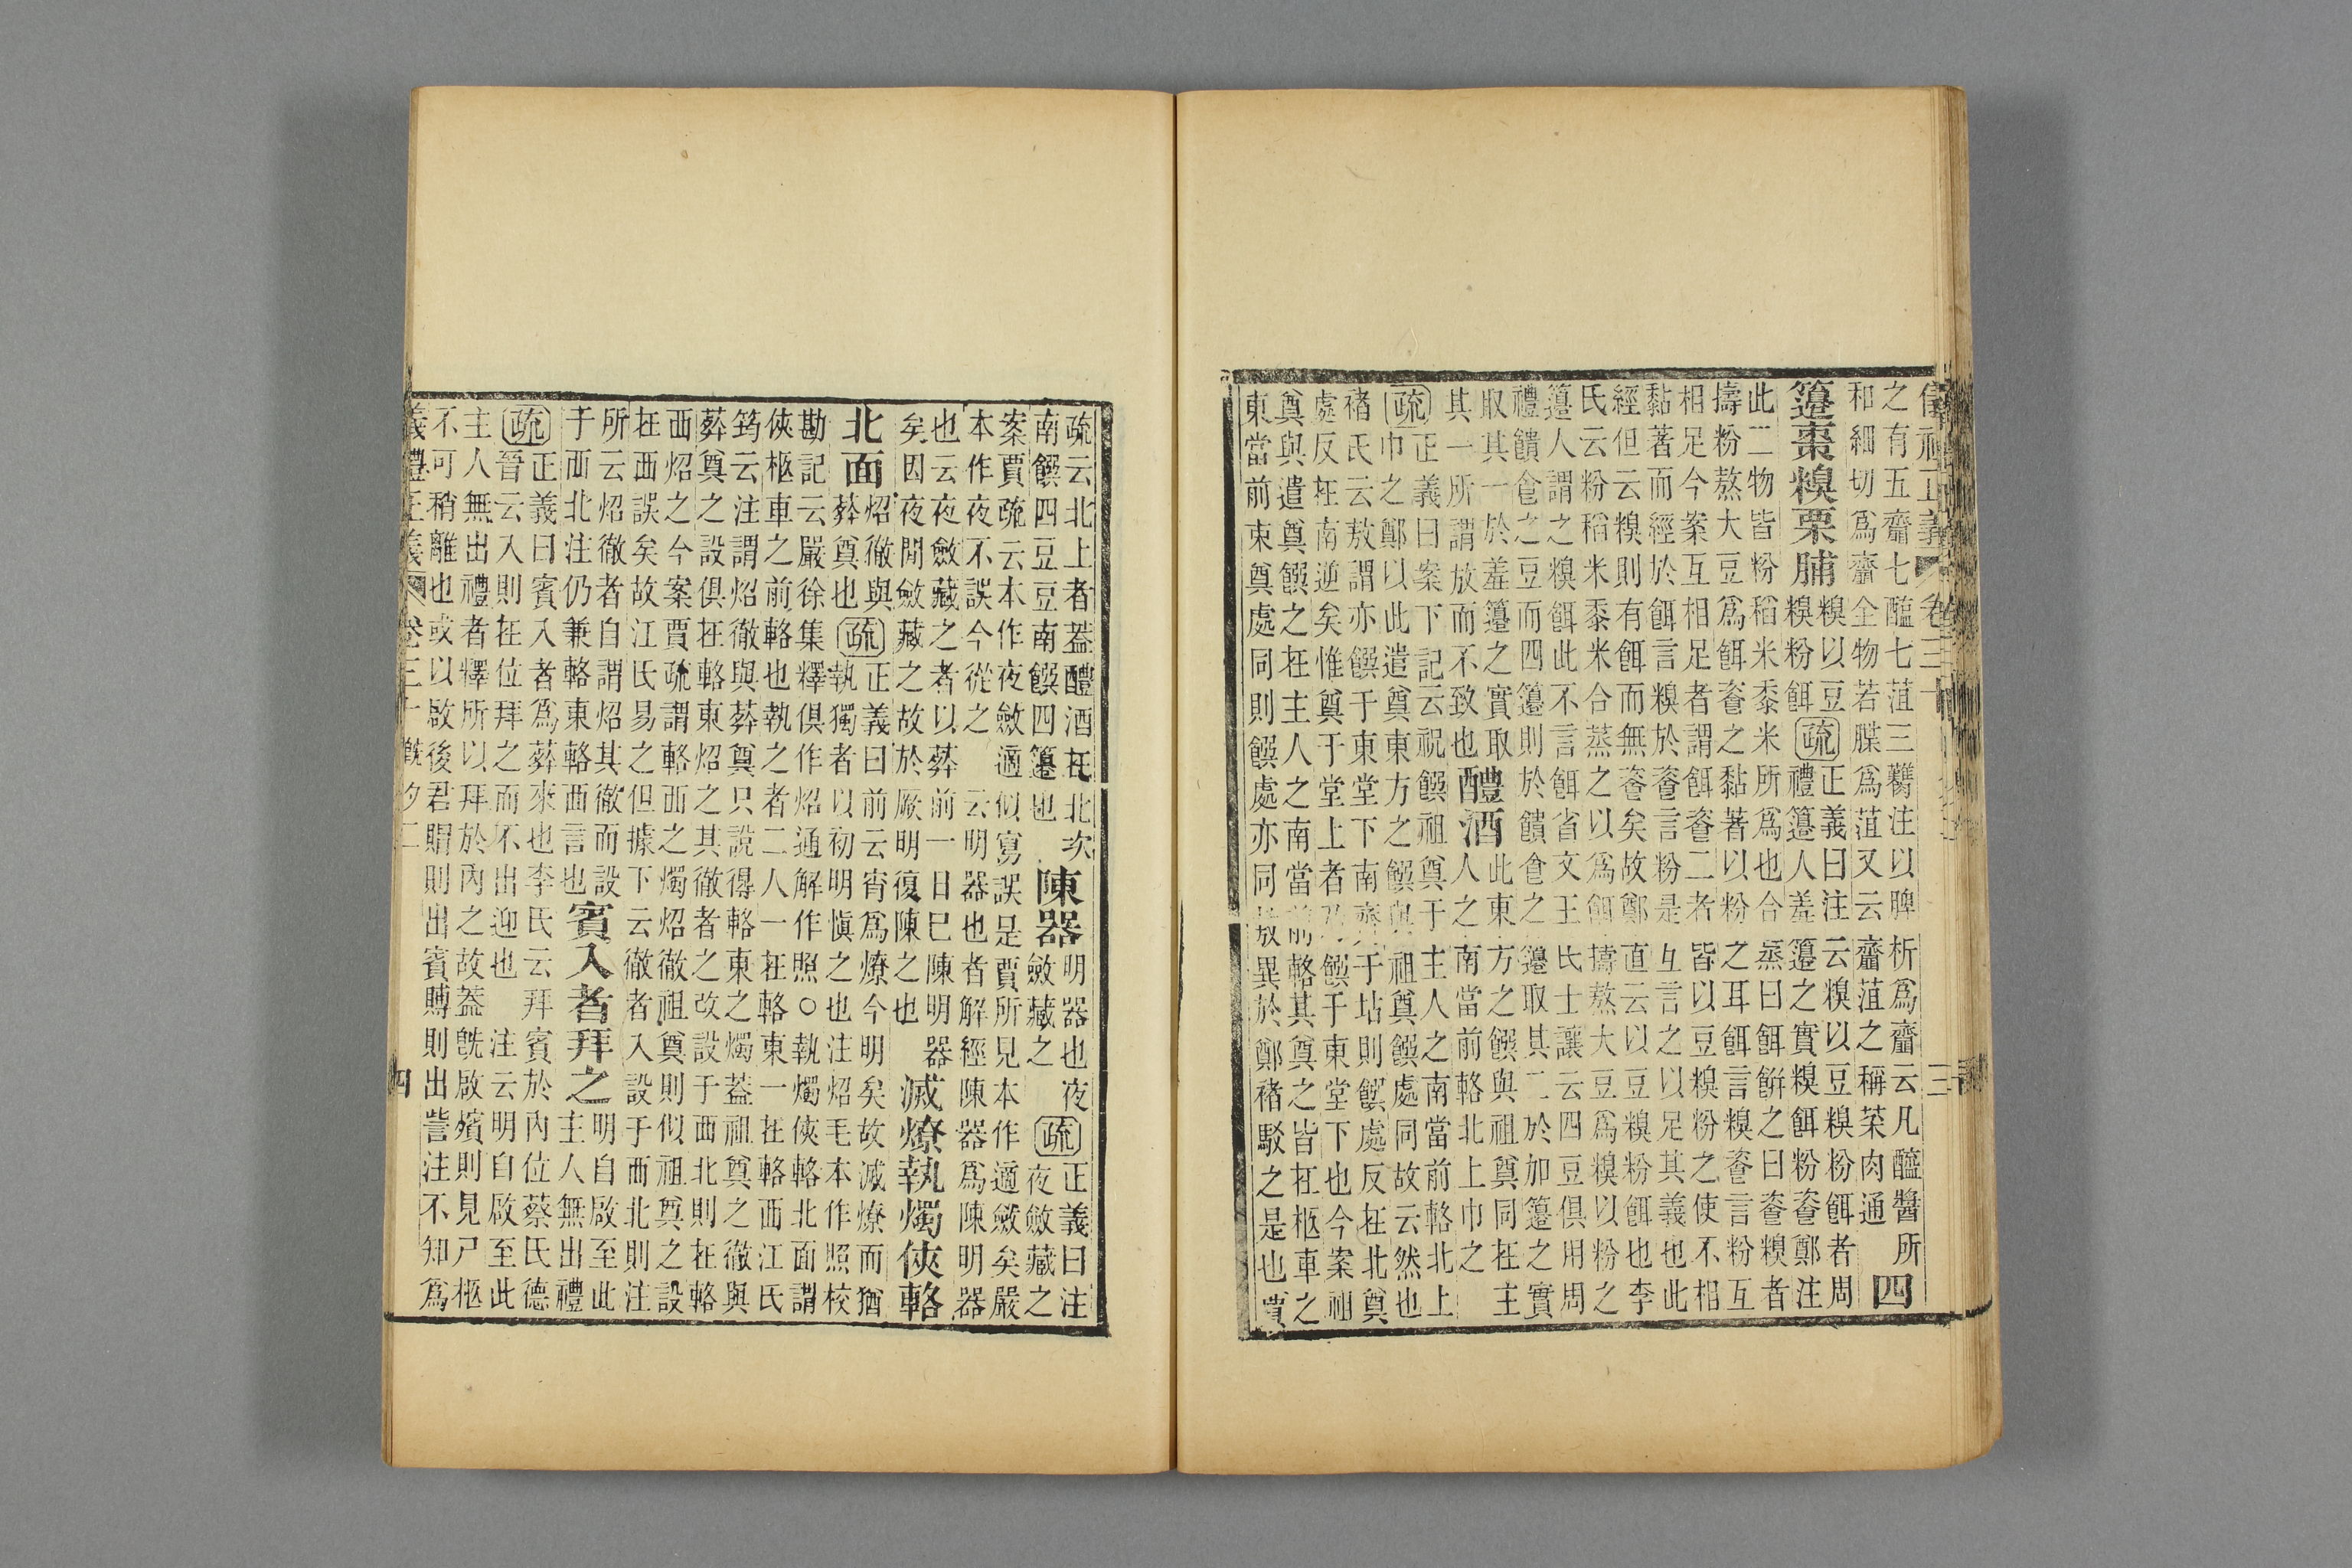 儀禮正義 卷三十 三
之有五齏七醢七菹三臡注以脾析爲齏云凡醯醬所
和細切爲齏全物若䐑爲菹又云齏菹之稱菜肉通 四
籩棗糗栗脯糗以豆糗粉餌疏正義曰注云糗以豆糗粉餌者周禮籩人羞籩之實糗餌粉餈鄭注
此二物皆粉稻米黍米所爲也合蒸曰餌餅之曰餈糗者
擣粉熬大豆爲餌餈之黏著以粉之耳餌言糗餈言粉互
相足今案互相足者謂餌餈二者皆以豆糗粉之使不相
黏著而經於餌言糗於餈言粉是互言之以足其義也此
經但云糗則有餌而無餈矣故鄭直云以豆糗粉餌也李
氏云粉稻米黍米合蒸之以爲餌擣熬大豆爲糗以粉之
籩人謂之糗餌此不言餌省文王氏士讓云四豆俱用周
禮饋食之豆而四籩則於饋食之籩取其二於加籩之實
取其一於羞籩之實取
其一所謂放而不致也 醴酒此東方之饌與祖奠同在主人之南當前輅北上巾之
疏正義曰案下記云祝饌祖奠于主人之南當前輅北上
巾之鄭以此遣奠東方之饌與祖奠饌處同故云然也
褚氏云敖謂亦饌于東堂下南齊于坫則饌處反在北奠
處反在南逆矣惟奠于堂上者乃饌于東堂下也今案祖
奠與遣奠饌之在主人之南當前輅其奠之皆在柩車之
東當前束奠處同則饌處亦同敖異於鄭褚駁之是也賈
疏云北上者蓋醴酒在北次
南饌四豆豆南饌四籩也 陳器明器也夜斂藏之疏正義曰注夜斂藏之
案賈疏云本作夜斂適似寫誤是賈所見本作適斂矣嚴
本作夜不誤今從之 云明器也者解經陳器爲陳明器
也云夜斂藏之者以葬前一日已陳明器
矣因夜間斂藏之故於厥明復陳之也 滅燎執燭俠輅
北面炤徹與葬奠也疏正義曰前云宵爲燎今明矣故滅燎而猶執獨者以初明愼之也注炤毛本作照校
勘記云嚴徐集釋俱作炤通解作照○執燭俠輅北面謂
俠柩車之前輅也執之者二人一在輅東一在輅西江氏
筠云注謂炤徹與葬奠只說得輅東之燭蓋祖奠之徹與
葬奠之設俱在輅東炤之其徹者之改設于西北則在輅
西炤之今案賈疏謂輅西之燭炤徹祖奠則似祖奠之設
在西誤矣故江氏易之但據下云徹者入設于西北則注
所云炤徹者自謂炤其徹而設
于西北注仍兼輅東輅西言也 賓入者拜之明自啟至此主人無出禮
疏正義曰賓入者爲葬來也李氏云拜賓於內位蔡氏德
晉云入則在位拜之而不出迎也 注云明自啟至此
主人無出禮者釋所以拜於內之故蓋旣啟殯則見尸柩
不可稍離也或以啟後君賵則出賓賻則出訾注不知爲
儀禮正義 卷三十 旣夕二 四